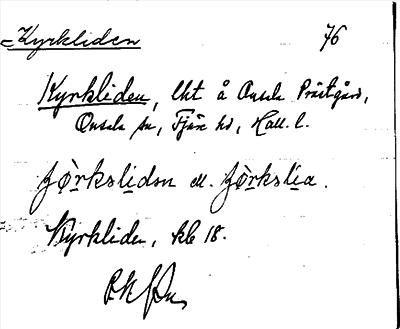 Kyrkliden 76
Kyrkliden, lht å Onsala Prästgård,
Onsala sn, Fjäre hd, Hall. l.
jò̀rkslidən ell. jò̀rkslia.
Kyrkliden, kbl 18.